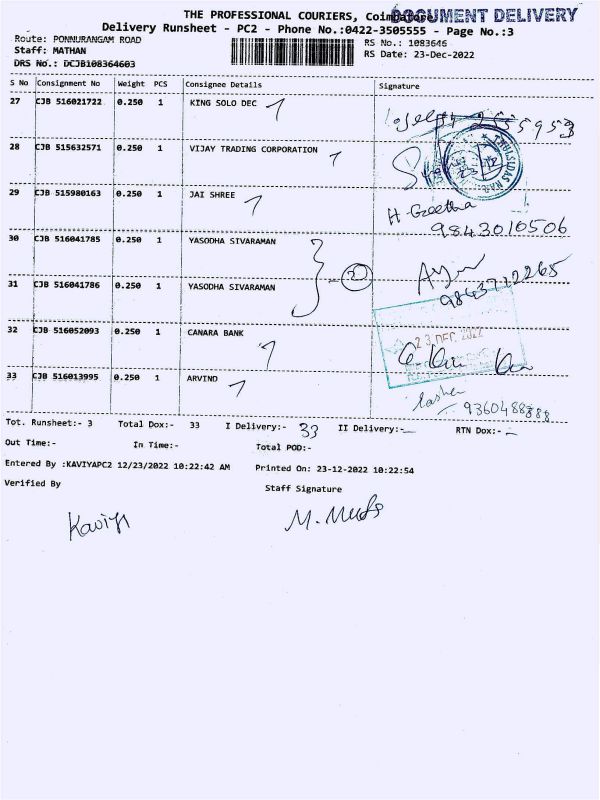 THE PROFESSIONAL COURIERS, Coimbatore
DOCUMENT DELIVERY
Delivery Runsheet - PC2 - Phone No.:0422-3505555 - Page No.:3
Route: PONNURANGAM ROAD
RS No.: 1083646
Staff: MATHAN
RS Date: 23-Dec-2022
DRS No.: DCJB108364603
S No Consignment No Weight PCS Consignee Details Signature
27 CJB 516021722 0.250 1 KING SOLO DEC 1
28 CJB 515632571 0.250 1 VIJAY TRADING CORPORATION 1
29 CJB 515980163 0.250 1 JAI SHREE 1 H-Geetha
9843010506
30 CJB 516041785 0.250 1 YASODHA SIVARAMAN
2
31 CJB 516041786 0.250 1 YASODHA SIVARAMAN
32 CJB 516052093 0.250 1 CANARA BANK 1
23 DEC 2022
33 CJB 516013995 0.250 1 ARVIND 1
Tot. Runsheet:- 3 Total Dox:- 33 I Delivery:- 33 II Delivery:- RTN Dox:-
Out Time:- In Time:- Total POD:-
Entered By :KAVIYAPC2 12/23/2022 10:22:42 AM Printed On: 23-12-2022 10:22:54
Verified By Staff Signature
Kaviya